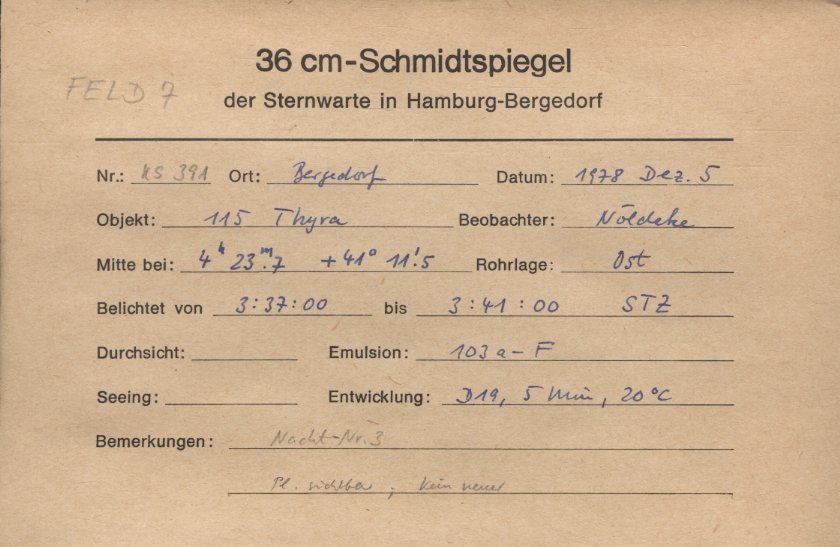 36 cm-Schmidtspiegel
FELD 7
der Sternwarte in Hamburg-Bergedorf
Nr.: KS 391 Ort: Bergedorf Datum: 1978 Dez. 5
Objekt: 115 Thyra Beobachter: Nöldeke
Mitte bei: 4h 23m.7 +41° 11'.5 Rohrlage: Ost
Belichtet von 3:37:00 bis 3:41:00 STZ
Durchsicht: Emulsion: 103a-F
Seeing: Entwicklung: D19, 5 Min, 20°C
Bemerkungen: Nacht-Nr. 3
Pl. sichtbar, kein neuer